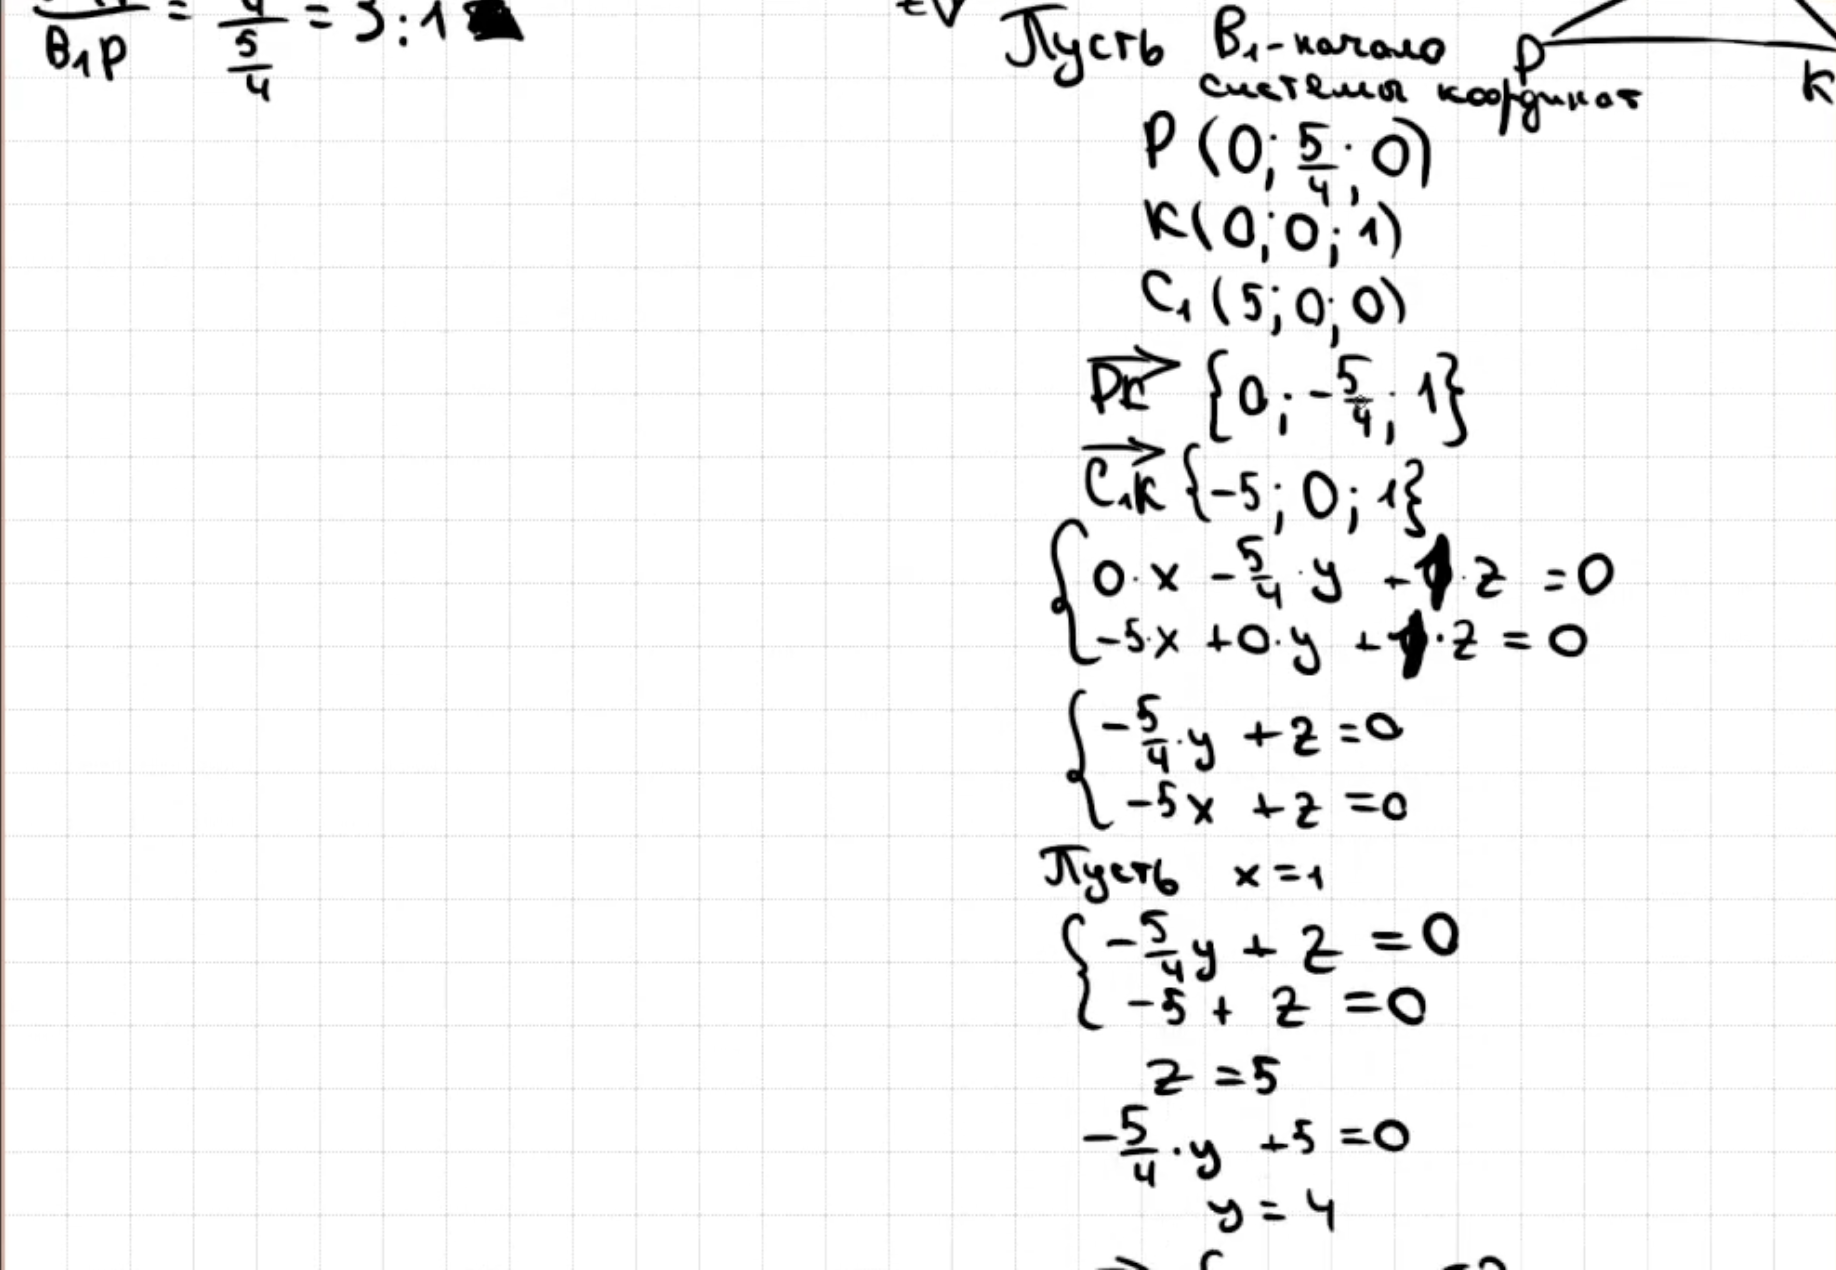 B₁P = 5/4 = 3:1
Пусть B₁-начало
системы координат
P
K
P (0; 5/4; 0)
K(0; 0; 1)
C₁ (5; 0; 0)
PK {0; -5/4; 1}
C₁K {-5; 0; 1}
0·x - 5/4·y + 1·z = 0
-5·x + 0·y + 1·z = 0
-5/4·y + z = 0
-5x + z = 0
Пусть x = 1
-5/4y + z = 0
-5 + z = 0
z = 5
-5/4·y + 5 = 0
y = 4